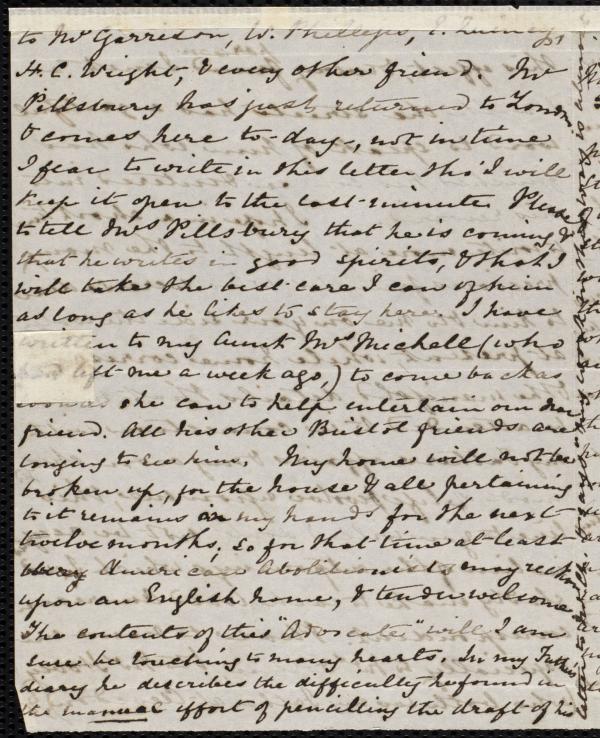 to Mr Garrison, W. Phillips, E. Quincy,
H. C. Wright, & every other friend. Mr
Pillsbury has just returned to London
& comes here to-day, not in time
I fear to write in this letter tho' I will
keep it open to the last minute. Please
to tell Mrs Pillsbury that he is coming, &
that he writes in good spirits, & that I
will take the best care I can of him
as long as he likes to stay here. I have
written to my Aunt Mrs Michell (who
left me a week ago,) to come back as
she can to help entertain our dear
friend. All his other Bristol friends are
longing to see him. My home will not be
broken up, for the house & all pertaining
to it remains in my hands for the next
twelve months, so for that time at least
American Abolitionists may reckon
upon an English home, & tender welcome
The contents of this "Advocate" will I am
sure be touching to many hearts. In my Father's
diary he describes the difficulty he found in
the manual effort of pencilling the draft of his
letter to